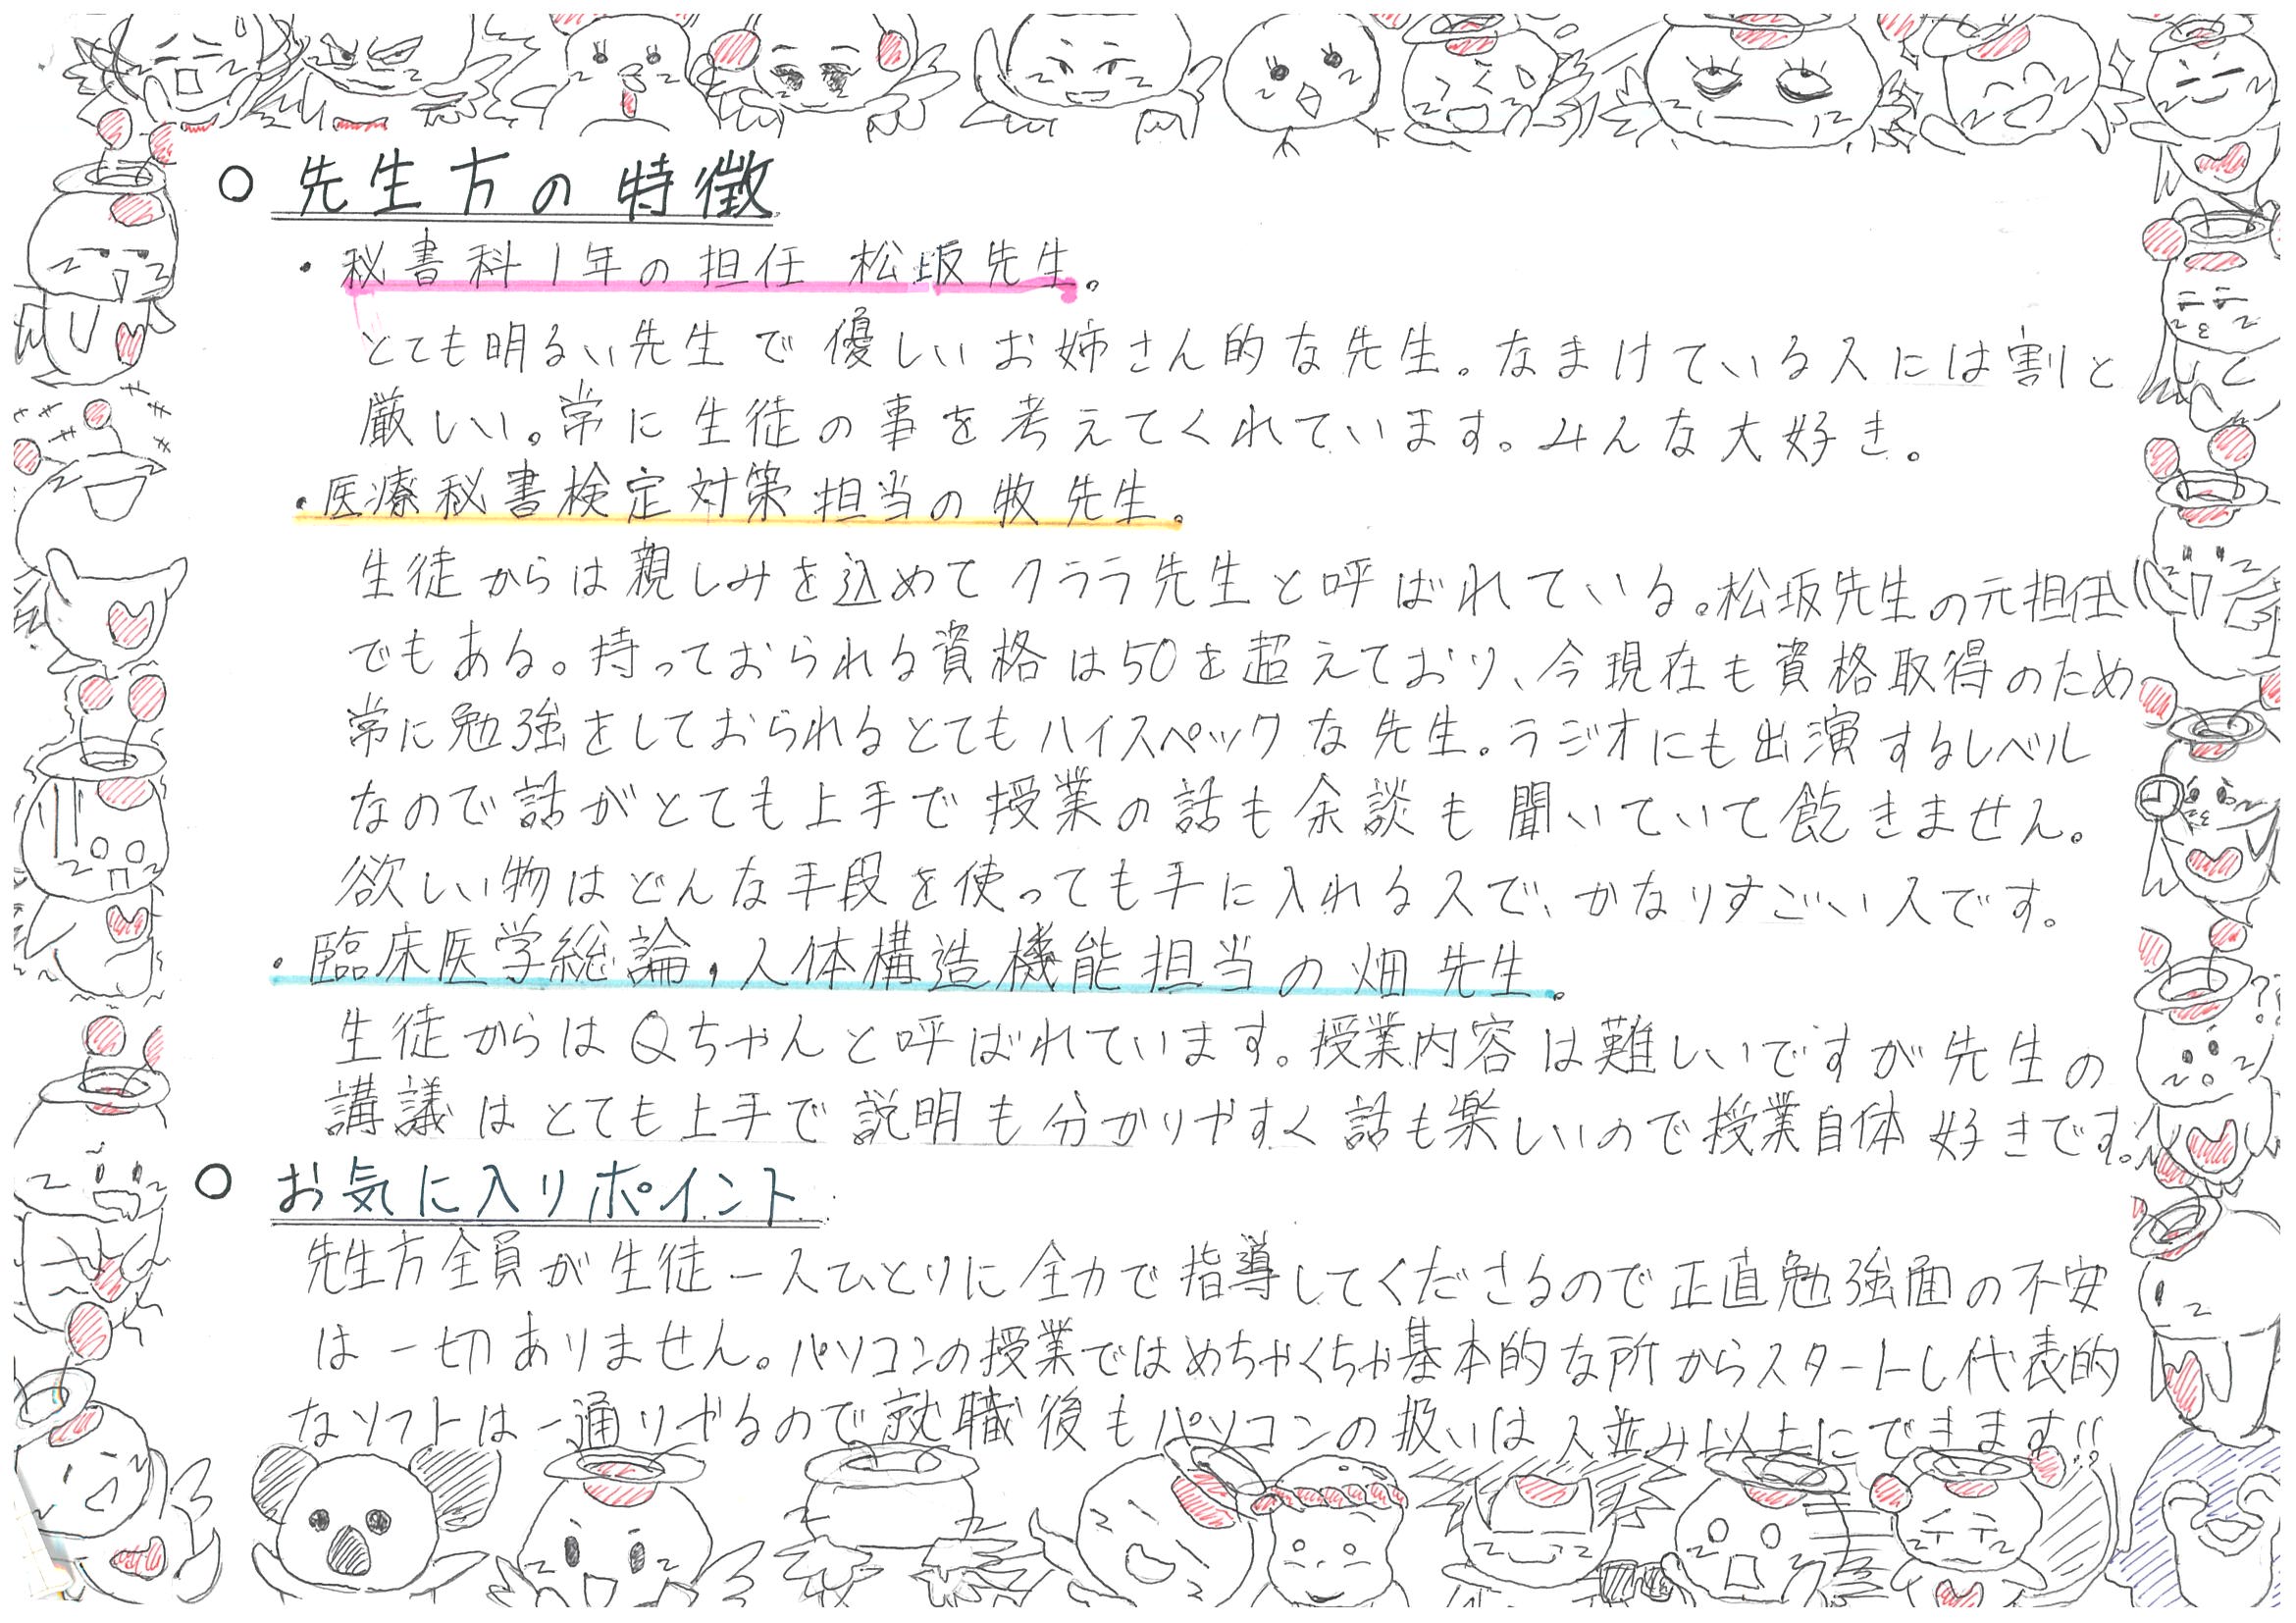 ○ 先生方の特徴
・秘書科1年の担任 松坂先生。
とても明るい先生で優しいお姉さん的な先生。なまけている人には割と
厳しい。常に生徒の事を考えてくれています。みんな大好き。
・医療秘書検定対策担当の牧先生。
生徒からは親しみを込めてクララ先生と呼ばれている。松坂先生の元担任
でもある。持っておられる資格は50を超えており、今現在も資格取得のため
常に勉強をしておられるとてもハイスペックな先生。ラジオにも出演するレベル
なので話がとても上手で授業の話も余談も聞いていて飽きません。
欲しい物はどんな手段を使っても手に入れる人で、かなりすごい人です。
・臨床医学総論,人体構造機能担当の畑先生。
生徒からはQちゃんと呼ばれています。授業内容は難しいですが先生の
講議はとても上手で説明も分かりやすく話も楽しいので授業自体好きです。
○ お気に入りポイント
先生方全員が生徒一人ひとりに全力で指導してくださるので正直勉強面の不安
は一切ありません。パソコンの授業ではめちゃくちゃ基本的な所からスタートし代表的
なソフトは一通りやるので就職後もパソコンの扱いは人並み以上にできます!!
??